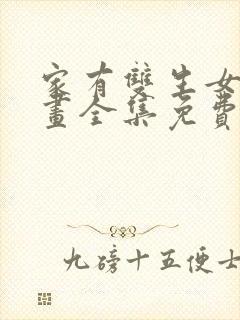 家有雙生女
畫全集免費
九磅十五便士